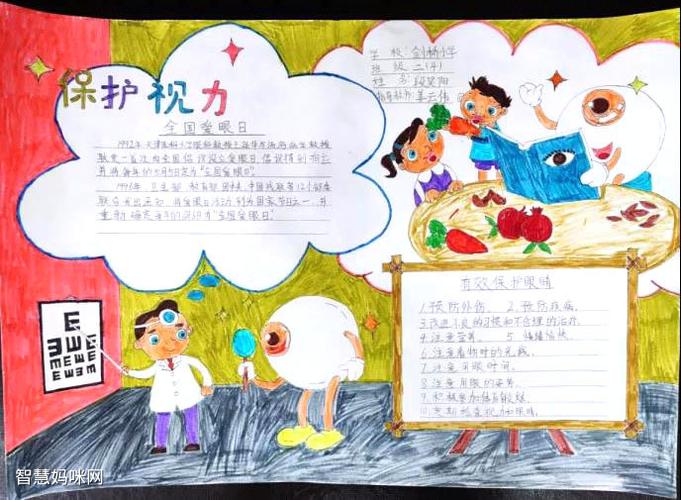 保护视力
学校:剑桥小学
班级:二(4)
姓名:段梁阳
指导老师:姜云伟
全国爱眼日
1992年,天津医科大学眼科教授王延华与流行病学教授
耿贯一首次向全国倡议设立爱眼日,倡议得到响应
并将每年的5月5日定为"全国爱眼日"。
1996年,卫生部、教育部、团中央、中国残联等12个部委
联合发出通知,将爱眼日活动列为国家节日之一,并
重新确定每年的6月6日为"全国爱眼日"。
有效保护眼睛
1.预防外伤。 2.预防疾病。
3.改进不良的习惯和不合理的治疗。
4.注意营养。 5.情绪愉快。
6.注意看物时的光线。
7.注意用眼时间。
8.注意用眼的姿势。
9.积极参加体育锻炼。
10.定期检查视力和眼睛。
智慧妈咪网